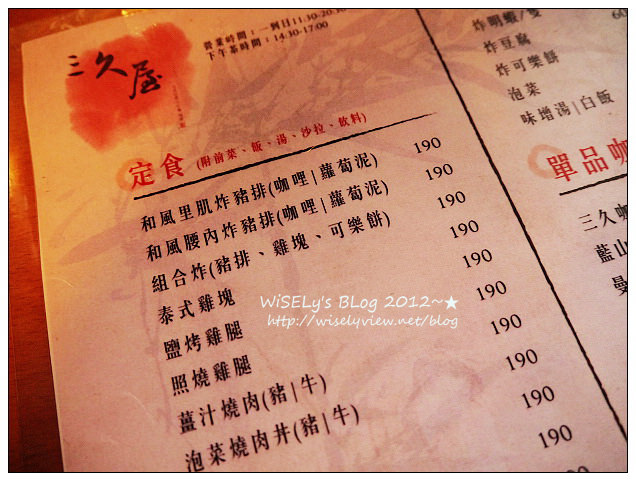 三久屋
營業時間：一到日11:30-20:30
下午茶時間：14:30-17:00
定食 (附前菜、飯、湯、沙拉、飲料)
和風里肌炸豬排(咖哩|蘿蔔泥) 190
和風腰內炸豬排(咖哩|蘿蔔泥) 190
組合炸(豬排、雞塊、可樂餅) 190
泰式雞塊 190
鹽烤雞腿 190
照燒雞腿 190
薑汁燒肉(豬|牛) 190
泡菜燒肉丼(豬|牛) 190
190
炸明蝦/隻 60
炸豆腐
炸可樂餅
泡菜
味增湯|白飯
單品咖
三久咖
藍山
曼
WiSELy's Blog 2012~★
http://wiselyview.net/blog